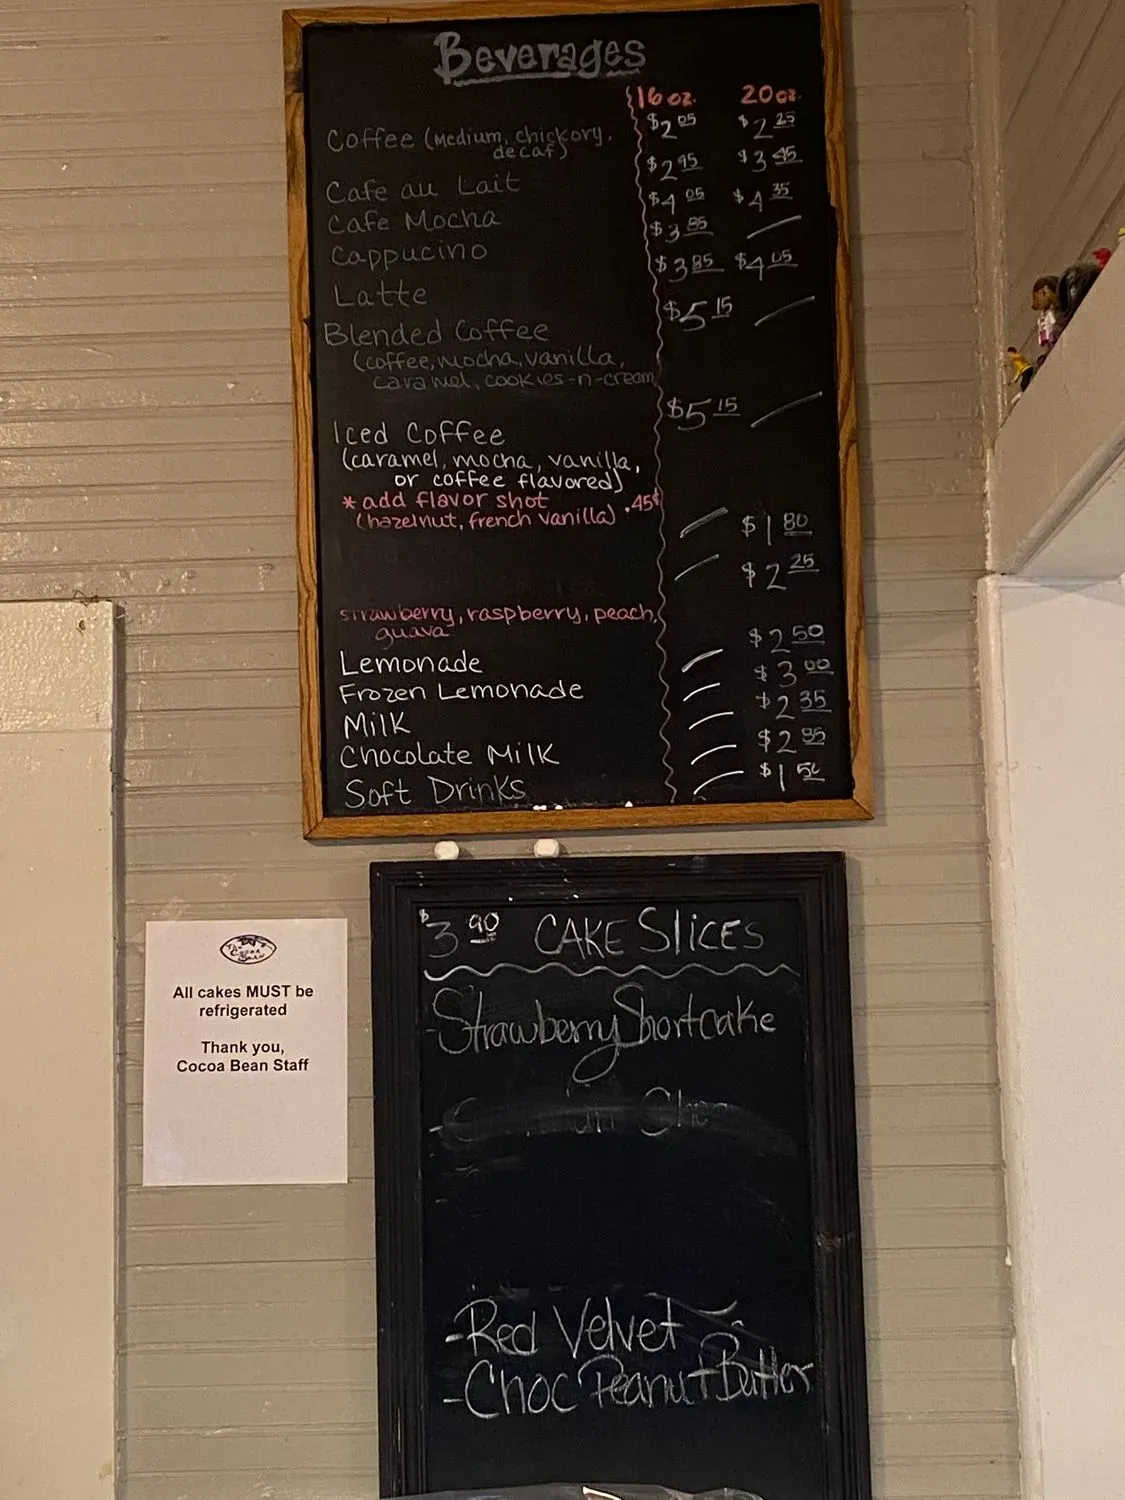 Beverages
16 oz. 20 oz.
Coffee (Medium, chickory, $2.05 $2.25
decaf)
Cafe au Lait $2.95 $3.45
Cafe Mocha $4.05 $4.35
Cappucino $3.85
Latte $3.85 $4.05
Blended Coffee $5.15
(coffee, mocha, vanilla,
caramel, cookies-n-cream
Iced Coffee $5.15
(caramel, mocha, vanilla,
or coffee flavored)
* add flavor shot .45¢
(hazelnut, french vanilla)
$1.80
$2.25
strawberry, raspberry, peach,
guava
Lemonade $2.50
Frozen Lemonade $3.00
Milk $2.35
Chocolate Milk $2.85
Soft Drinks $1.50
$3.90 CAKE SlICES
-Strawberry Shortcake
-Red Velvet
-Choc Peanut Butter
The
Cocoa
Bean
All cakes MUST be
refrigerated
Thank you,
Cocoa Bean Staff